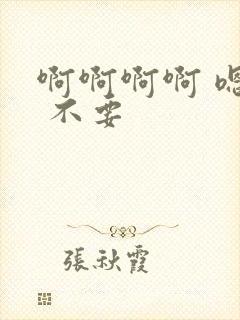 啊啊啊啊 嗯
不要
張秋霞